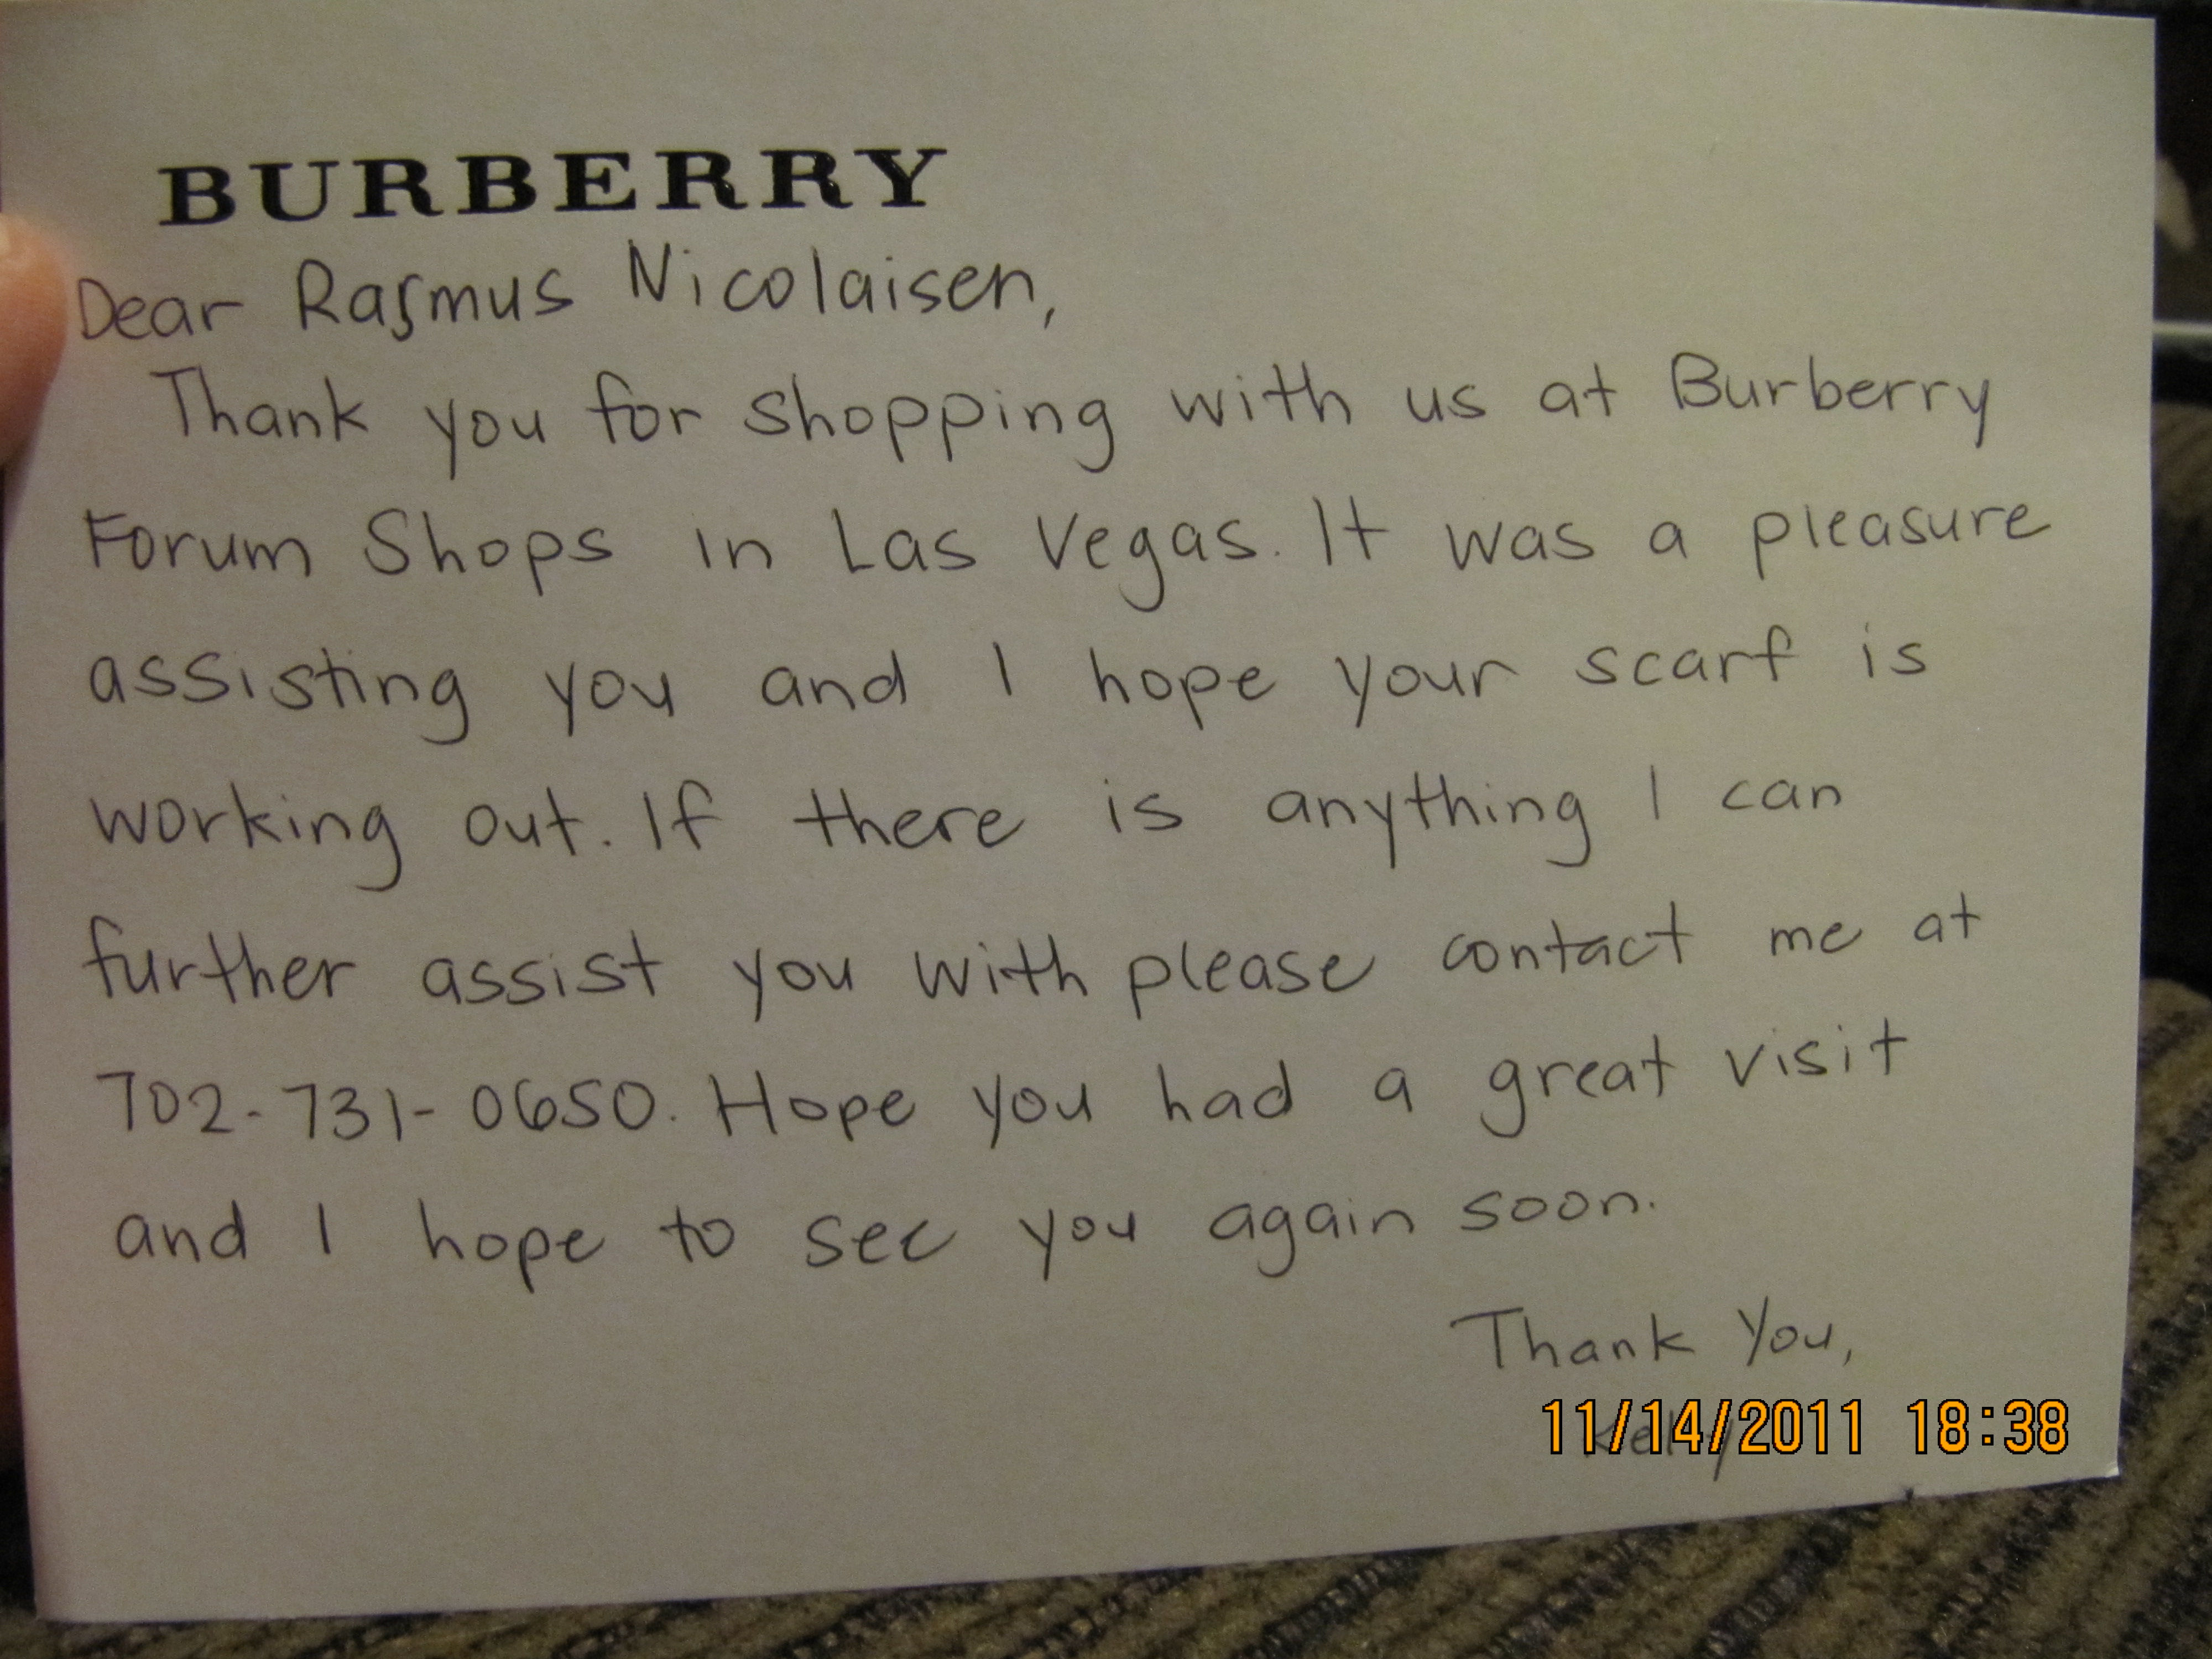 BURBERRY
Dear Rasmus Nicolaisen,
Thank you for shopping with us at Burberry
Forum Shops in Las Vegas. It was a pleasure
assisting you and I hope your scarf is
working out. If there is anything I can
further assist you with please contact me at
702-731-0650. Hope you had a great visit
and I hope to see you again soon.
Thank You,
Kelly
11/14/2011 18:38